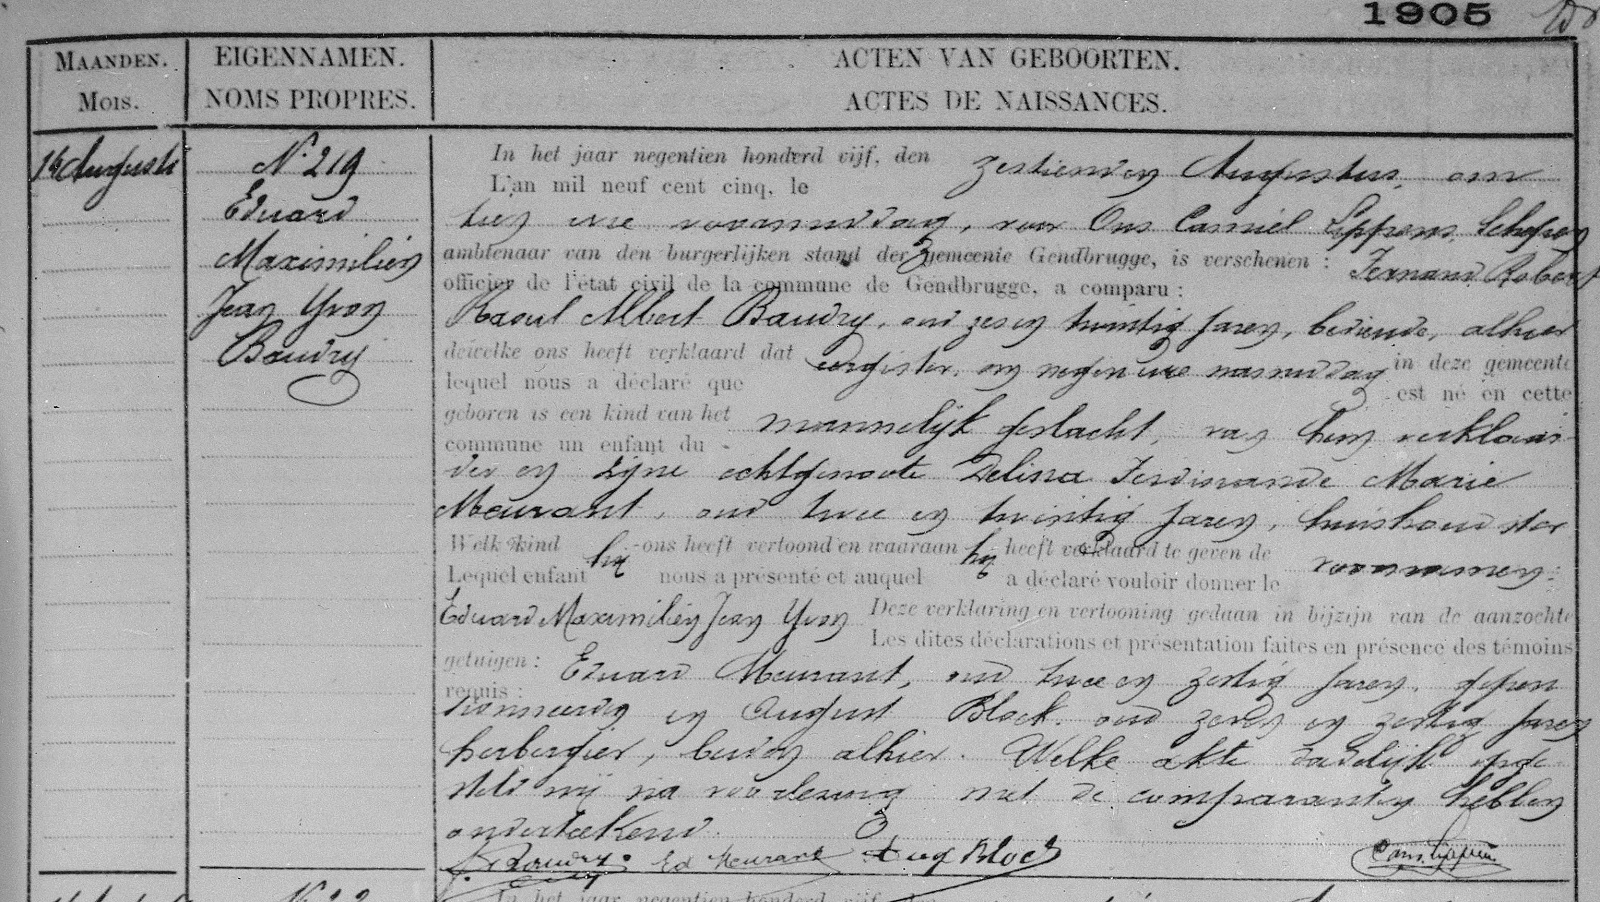 1905
MAANDEN.
MOIS.
EIGENNAMEN.
NOMS PROPRES.
ACTEN VAN GEBOORTEN.
ACTES DE NAISSANCES.
16 Augusti
N. 219
Eduard
Maximilien
Jean Yvon
Baudry
In het jaar negentien honderd vijf, den zestienden Augustus, om
L'an mil neuf cent cinq, le
tien ure voormiddag, voor Ons Camiel Lippens, Schepen
ambtenaar van den burgerlijken stand der gemeente Gendbrugge, is verschenen : Fernand Robert
officier de l'état civil de la commune de Gendbrugge, a comparu :
Raoul Albert Baudry, oud zes en twintig jaren, bediende, alhier
dewelke ons heeft verklaard dat eergister, om negen ure namiddag in deze gemeente
lequel nous a déclaré que est né en cette
geboren is een kind van het mannelijk geslacht, van hem verklaar-
commune un enfant du
der en zijne echtgenoote Delissa Ferdinande Marie
Meurant, oud twee en twintig jaren, huishoudster
Welk kind hij ons heeft vertoond en waaraan hij heeft verklaard te geven de voornamen:
Lequel enfant nous a présenté et auquel a déclaré vouloir donner le
Eduard Maximilien Jean Yvon Deze verklaring en vertooning gedaan in bijzijn van de aanzochte
Les dites déclarations et présentation faites en présence des témoins
getuigen : Eduard Meurant, oud twee en zestig jaren, gepen
requis :
sionneerde en August Block, oud zes en zestig jaren
herbergier, beiden alhier. Welke akte dadelijk opge
steld wij na voorlezing met de comparanten hebben
onderteekend.
Baudry Ed Meurant Aug Block Cam. Lippens
In het jaar negentien honderd vijf, den